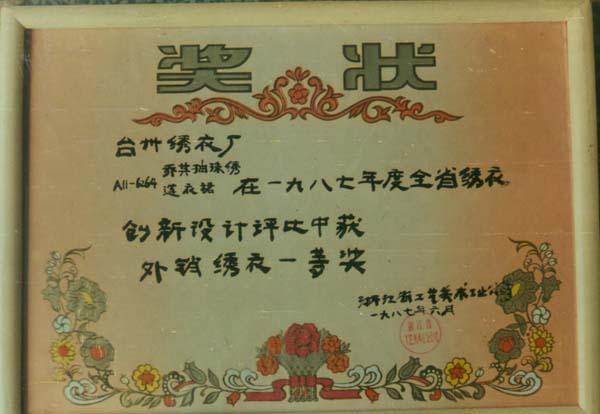 奖状
台州绣衣厂
A11-6264 乔其抽珠绣
连衣裙 在一九八七年度全省绣衣
创新设计评比中获
外销绣衣一等奖
浙江省工艺美术工业公司
一九八七年六月